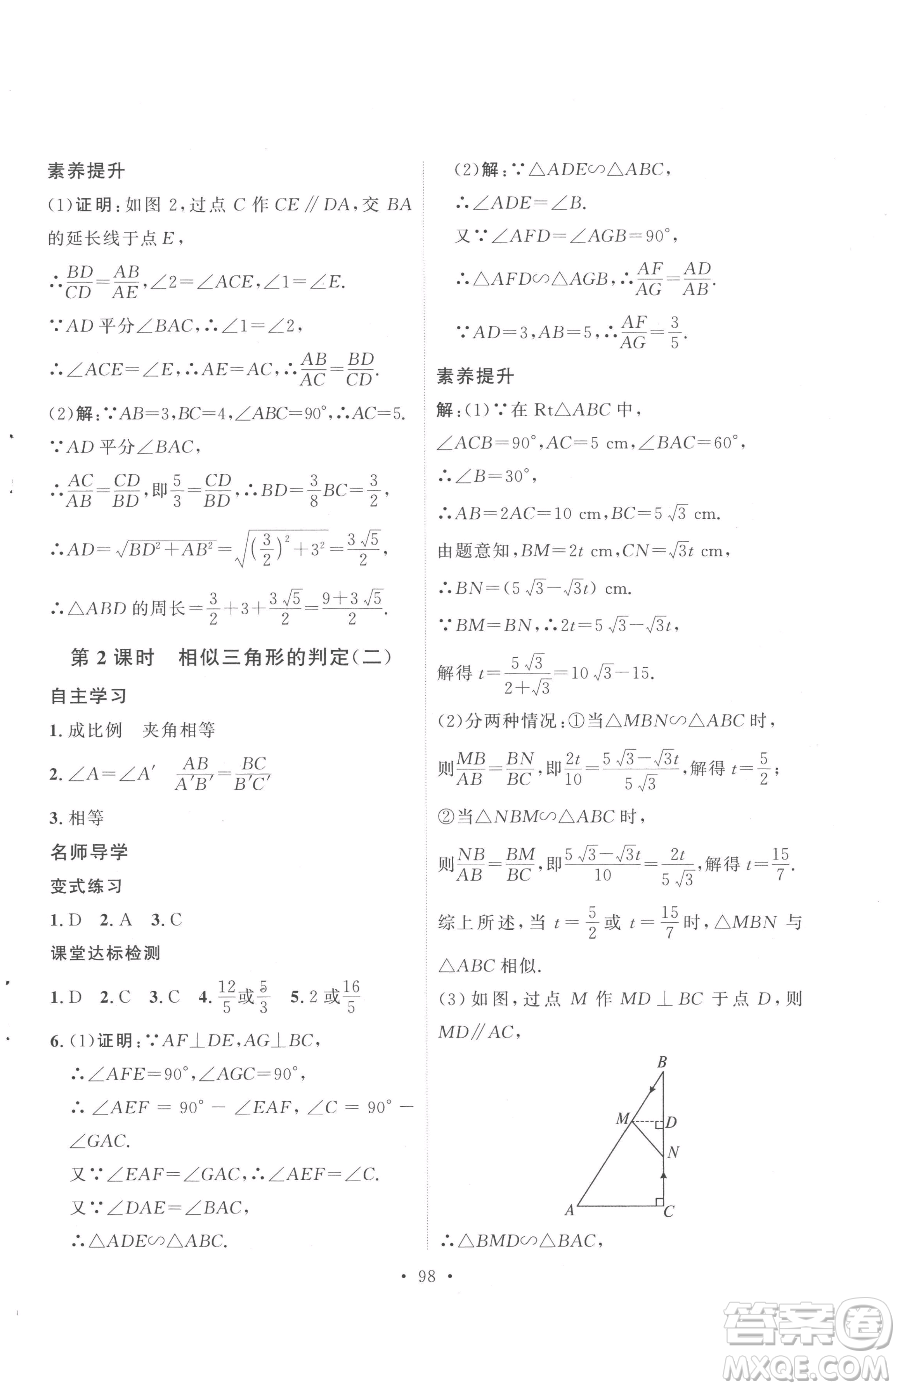 素养提升
(1)证明:如图 2,过点 C 作 CE∥DA,交 BA
的延长线于点 E,
∴BD/CD=AB/AE,∠2=∠ACE,∠1=∠E.
∵AD 平分∠BAC,∴∠1=∠2,
∴∠ACE=∠E,∴AE=AC,∴AB/AC=BD/CD.
(2)解:∵AB=3,BC=4,∠ABC=90°,∴AC=5.
∵AD 平分∠BAC,
∴AC/AB=CD/BD,即5/3=CD/BD,∴BD=3/8BC=3/2,
∴AD=√(BD²+AB²)=√((3/2)²+3²)=3√5/2,
∴△ABD 的周长=3/2+3+3√5/2=(9+3√5)/2.
第 2 课时 相似三角形的判定(二)
自主学习
1.成比例 夹角相等
2.∠A=∠A′ AB/A′B′=BC/B′C′
3.相等
名师导学
变式练习
1.D 2.A 3.C
课堂达标检测
1.D 2.C 3.C 4.12/5或5/3 5.2 或16/5
6.(1)证明:∵AF⊥DE,AG⊥BC,
∴∠AFE=90°,∠AGC=90°,
∴∠AEF=90°-∠EAF,∠C=90°-
∠GAC.
又∵∠EAF=∠GAC,∴∠AEF=∠C.
又∵∠DAE=∠BAC,
∴△ADE∽△ABC.
(2)解:∵△ADE∽△ABC,
∴∠ADE=∠B.
又∵∠AFD=∠AGB=90°,
∴△AFD∽△AGB,∴AF/AG=AD/AB.
∵AD=3,AB=5,∴AF/AG=3/5.
素养提升
解:(1)∵在 Rt△ABC 中,
∠ACB=90°,AC=5 cm,∠BAC=60°,
∴∠B=30°,
∴AB=2AC=10 cm,BC=5√3 cm.
由题意知,BM=2t cm,CN=√3t cm,
∴BN=(5√3-√3t) cm.
∵BM=BN,∴2t=5√3-√3t,
解得 t=5√3/(2+√3)=10√3-15.
(2)分两种情况:①当△MBN∽△ABC 时,
则MB/AB=BN/BC,即2t/10=(5√3-√3t)/5√3,解得 t=5/2;
②当△NBM∽△ABC 时,
则NB/AB=BM/BC,即(5√3-√3t)/10=2t/5√3,解得 t=15/7.
综上所述,当 t=5/2或 t=15/7时,△MBN 与
△ABC 相似.
(3)如图,过点 M 作 MD⊥BC 于点 D,则
MD∥AC,
B
M
D
N
A
C
∴△BMD∽△BAC,
• 98 •
答案圈
MXQE.COM